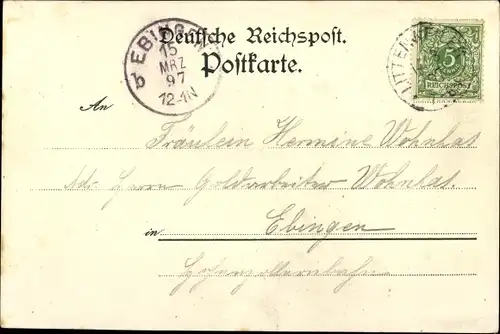 Deutsche Reichspost.
Postkarte.
b EBINGEN
15
MRZ
97
12-1N
5
REICHSPOST
An Fräulein Hermine Wohnlas
Adr. Herrn Goldarbeiter Wohnlas.
in Ebingen
Hohenzollernbahn